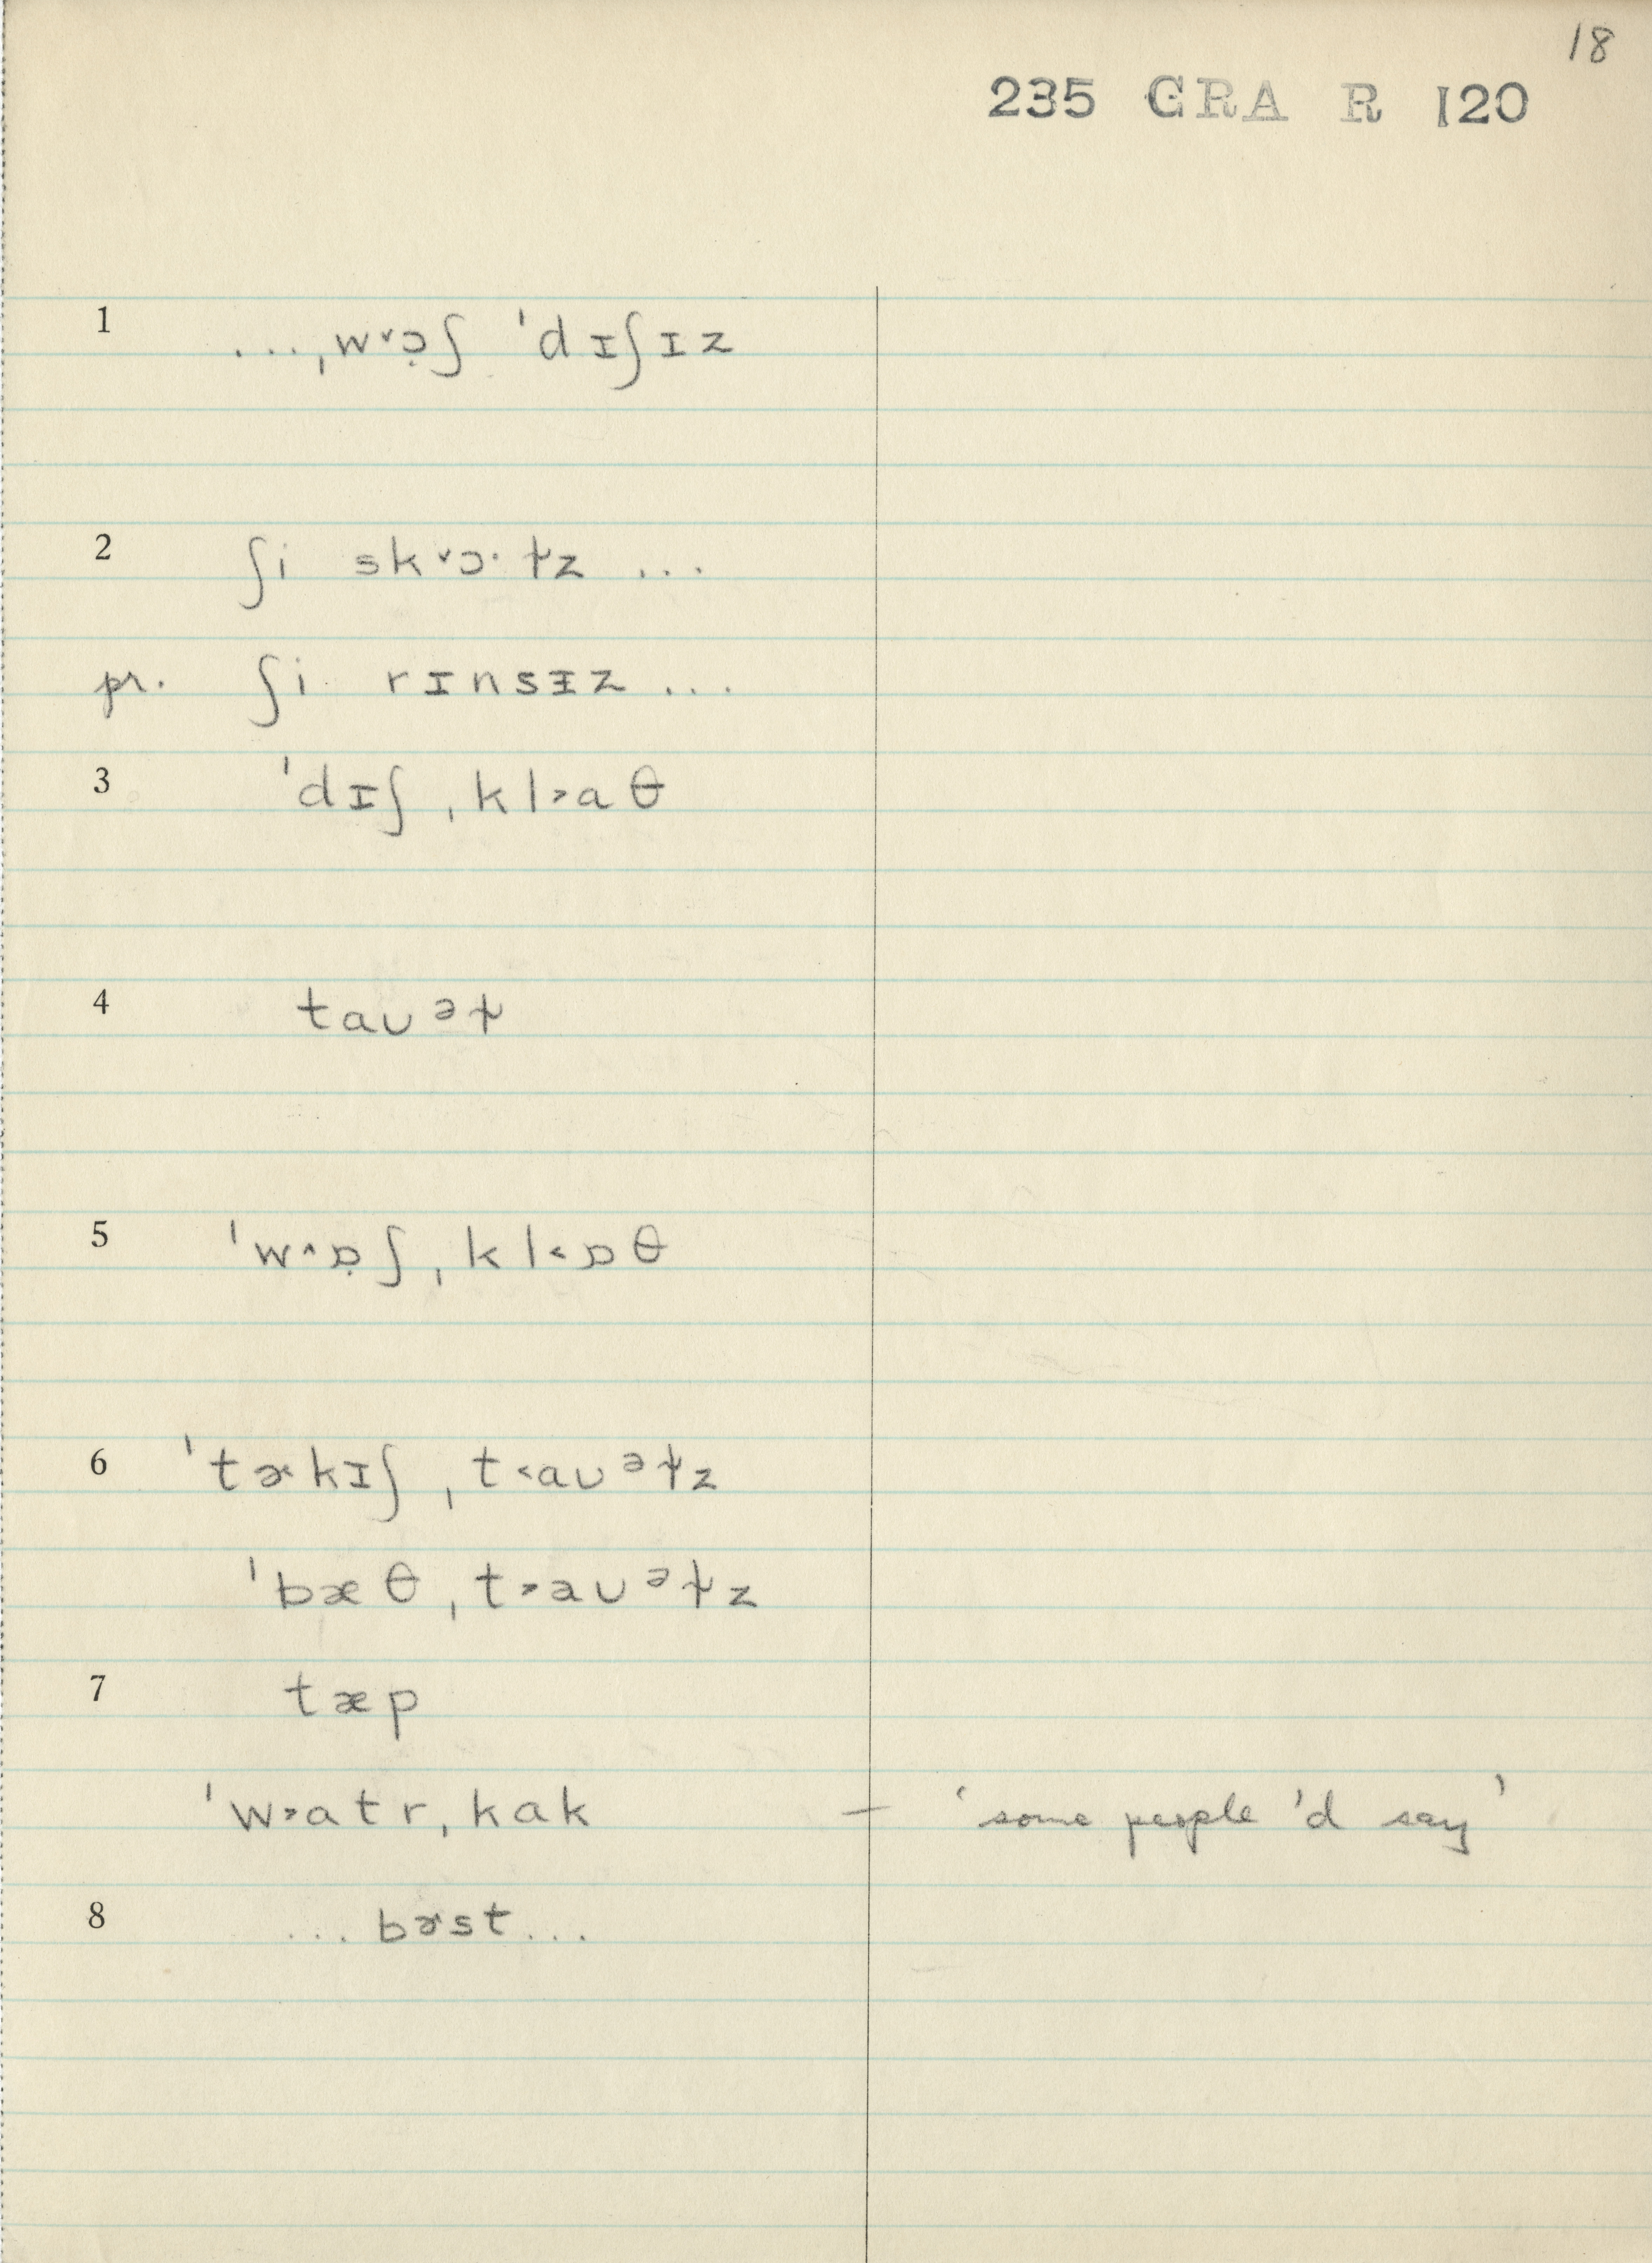 18
235 GRA R 120
1 ...ˌw˅ɔ̣ʃ ˈdɪʃɪz
2 ʃi sk˅ɔ·ɫz ...
pr. ʃi rɪnsᵻz ...
3 ˈdɪʃˌkl˃aθ
4 taᴜᵊɫ
5 ˈw˄ɒ̣ʃˌkl˂ɒθ
6 ˈtɚkɪʃˌt˂aᴜᵊɫz
ˈbæθˌt˃aᴜᵊɫz
7 tæp
ˈw˃atrˌkak — ‘some people 'd say’
8 ...bɚst...